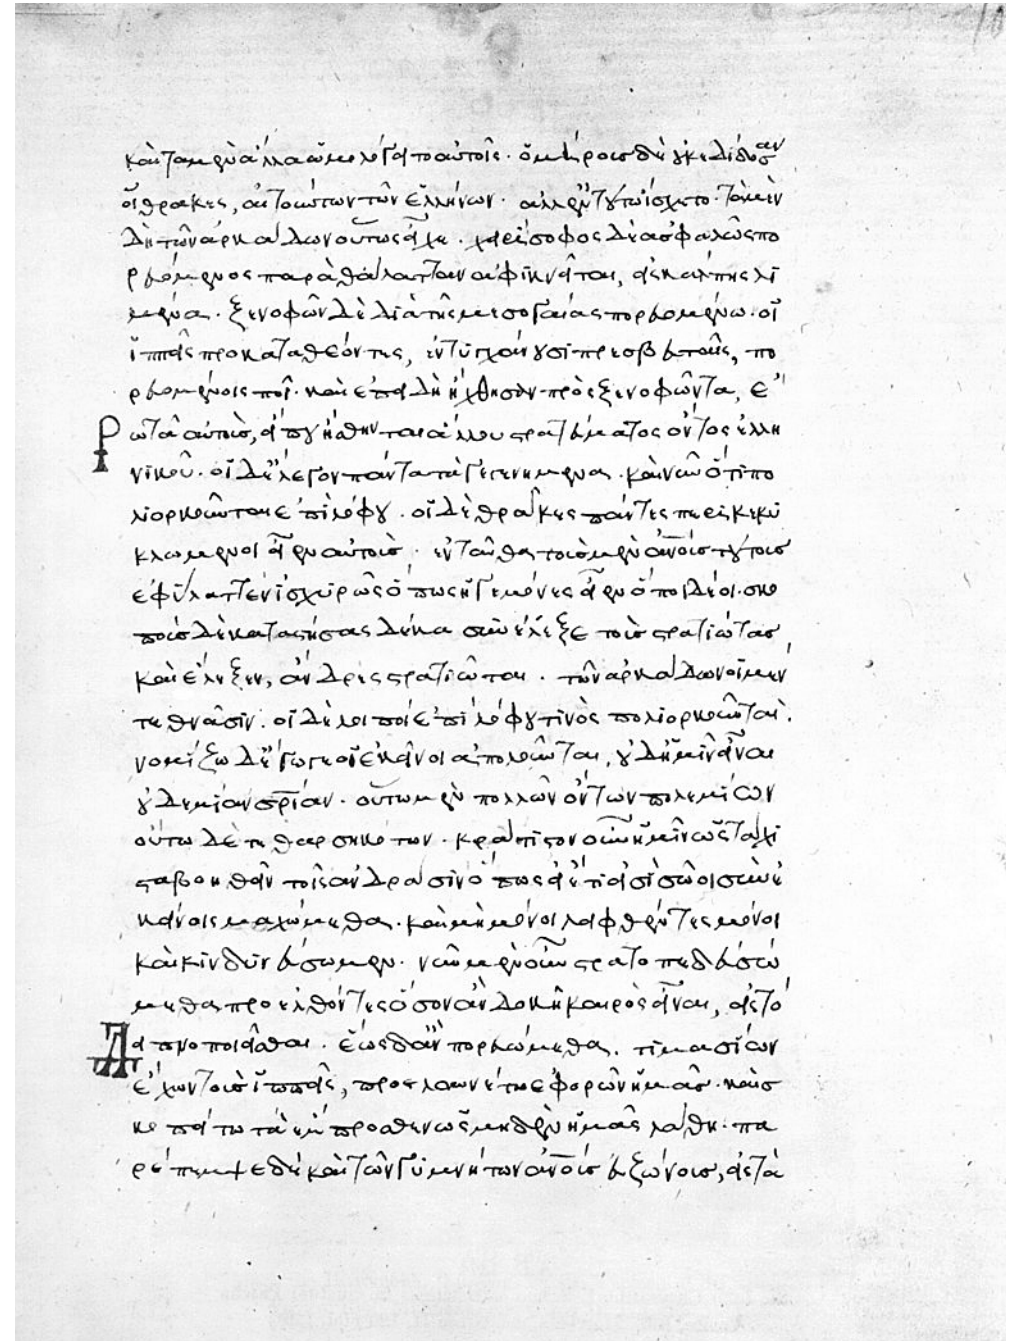 καὶ τὰ μὲν ἄλλα ὡμολόγητο αὐτοῖς· ὁμήρους δὲ οὐκ ἐδίδοσαν
οἱ θρᾶκες, αἰτούντων τῶν ἑλλήνων· ἀλλ' ἐν τούτῳ ἴσχετο· τὰ μὲν
δὴ τῶν ἀρκάδων οὕτως εἶχε· χειρίσοφος δὲ ἀσφαλῶς πο
ρευόμενος παρὰ θάλατταν ἀφικνεῖται, εἰς κάλπης λι
μένα· ξενοφῶν δὲ διὰ τῆς μεσογαίας πορευομένω· οἱ
ἱππεῖς προκαταθέοντες, ἐντυγχάνουσι πρεσβευταῖς, πο
ρευομένοις ποῖ· καὶ ἐπειδὴ ἤχθησαν πρὸς ξενοφῶντα, ἐ
ρωτᾶ αὐτοὺς, εἴ που ἤσθηνται ἄλλου στρατεύματος ὄντος ἑλλη
νικοῦ· οἱ δὲ ἔλεγον πάντα τὰ γεγενημένα· καὶ νῦν ὅτι πο
λιορκοῦνται ἐπὶ λόφου· οἱ δὲ θρᾶκες πάντες περικεκυ
κλωμένοι εἶεν αὐτοὺς· ἐνταῦθα τοὺς μὲν ἀνους τούτους
ἐφύλαττεν ἰσχυρῶς ὅπως ἡγεμόνες εἶεν ὅποι δέοι· σκο
ποὺς δὲ καταστήσας δέκα συνέλεξε τοὺς στρατιώτας
καὶ ἔλεξεν, ἄνδρες στρατιῶται· τῶν ἀρκάδων οἱ μὲν
τεθνᾶσιν· οἱ δὲ λοιποὶ ἐπὶ λόφου τινὸς πολιορκοῦνται·
νομίζω δ' ἔγωγε εἰ ἐκεῖνοι ἀπολοῦνται, οὐδ' ἡμῖν εἶναι
οὐδεμίαν σρίαν· οὕτω μὲν πολλῶν ὄντων πολεμίων
οὕτω δὲ τεθαρσηκότων· κράτιστον οὖν ἡμῖν ὡς τάχι
στα βοηθεῖν τοῖς ἀνδράσιν ὅπως εἰ ἔτι εἰσὶ σῶοι σὺν ἐ
κείνοις μαχώμεθα· καὶ μὴ μόνοι λειφθέντες μόνοι
καὶ κινδυνεύσωμεν· νῦν μὲν οὖν στρατοπεδευσώ
μεθα προελθόντες ὅσον ἂν δοκῆ καιρὸς εἶναι, εἰς τὸ
δειπνοποιεῖσθαι· ἕως δ' ἂν πορευώμεθα· τιμασίων
ἔχων τοὺς ἱππεῖς, προελαυνέτω ἐφορῶν ἡμᾶς· καὶ σ
κοπείτω τὰ ἔμπροσθεν ὡς μηδὲν ἡμᾶς λάθη· πα
ρέπεμψε δὲ καὶ τῶν γυμνήτων ἀνους εὐζώνους, εἰς τὰ